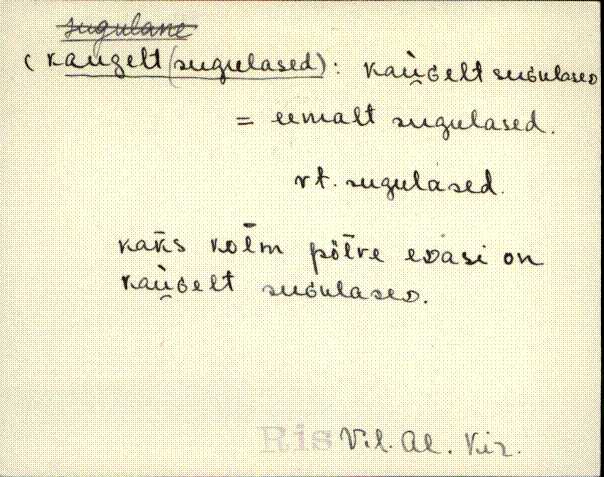 sugulane
(kaugelt (sugulased): kau̬ɢelt suɢulaseᴅ
= eemalt sugulased.
vt. sugulased.
kak̄s kol̄m pōl̄ve eᴅasi on
kau̬ɢelt suɢulaseᴅ.
Ris Vil. Al. Vir.